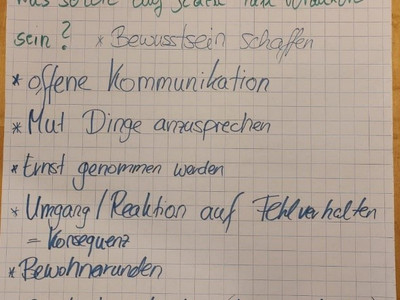 was sollte
sein? * Bewusstsein schaffen
* offene Kommunikation
* Mut Dinge anzusprechen
* Ernst genommen werden
* Umgang/Reaktion auf Fehlverhalten
= Konsequenz
* Bewohnerrunden